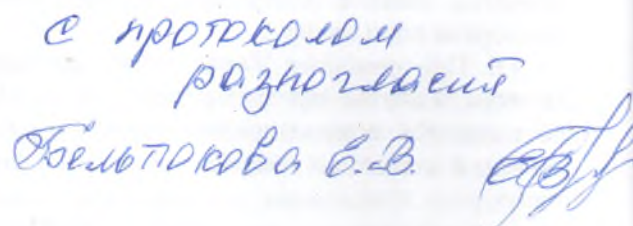 с протоколом
разногласий
Бельтюкова Е.В.